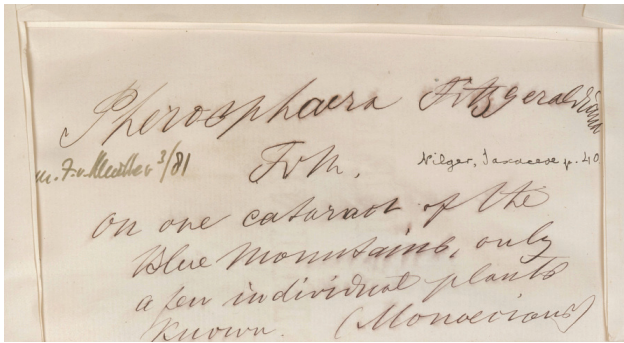 Pherosphaera Fitzgeraldiana
F. v. Mueller 3/81
FvM.
Pilger, Taxaceae p. 40
On one cataract of the
Blue Mountains, only
a few individual plants
known. (Monoecious)